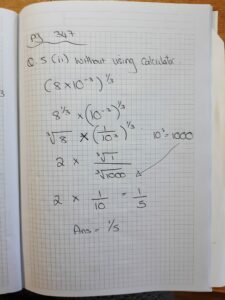 Pg 347
Q. 5 (ii) without using calculator
(8 × 10⁻³)^⅓
8^⅓ × (10⁻³)^⅓
∛8 × (1/10³)^⅓ 10³ = 1000
2 × ∛1/∛1000
2 × 1/10 = 1/5
Ans = 1/5